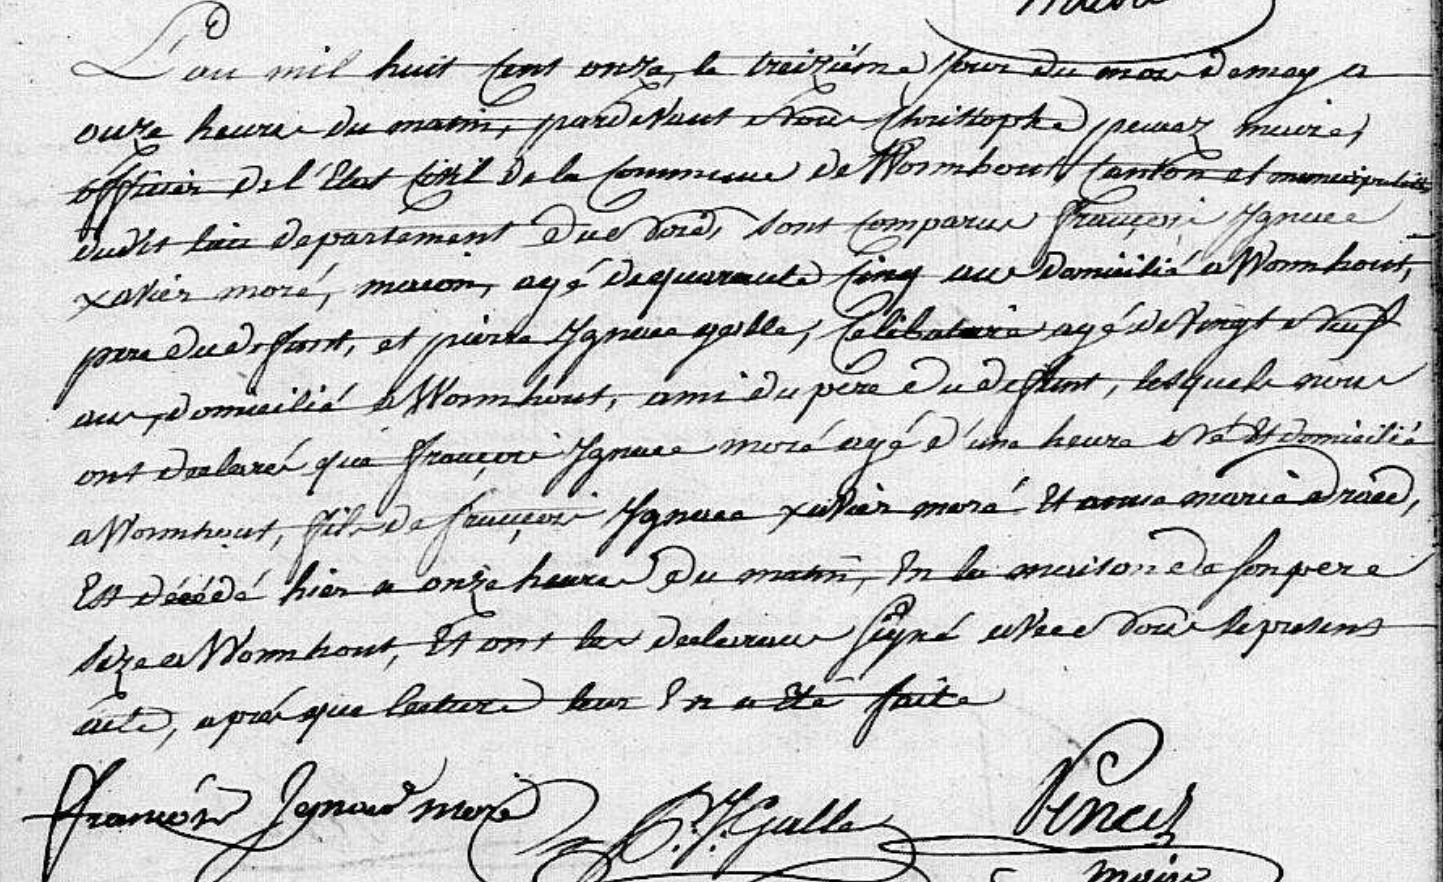 maire
L'an mil huit Cent onze, le treizième Jour du mois de may a
onze heures du matin, pardevant Nous Christophe maire,
officier de l'Etat Civil de la Commune de Wormhout, Canton et municipalité
dudit lieu departement du Nord, sont comparus françois Ignace
xavier moré, macon, agé de quarante Cinq ans Domicilié a Wormhout,
pere du defunt, et pierre Ignace galle, Célibataire agé de Vingt Neuf
ans, domicilié a Wormhout, ami du père du defunt, lesquels nous
ont declaré que françois Ignace moré agé d'une heure Né Et domicilié
a Wormhout, fils de françois Ignace xavier moré Et anne marie
Est décédé hier a onze heures du matin, En la maison de son pere
size a Wormhout, Et ont les declarans signé avec Nous le present
acte, aprés que lecture leur En a Eté faite
françois Ignace moré P. J. Galle
maire